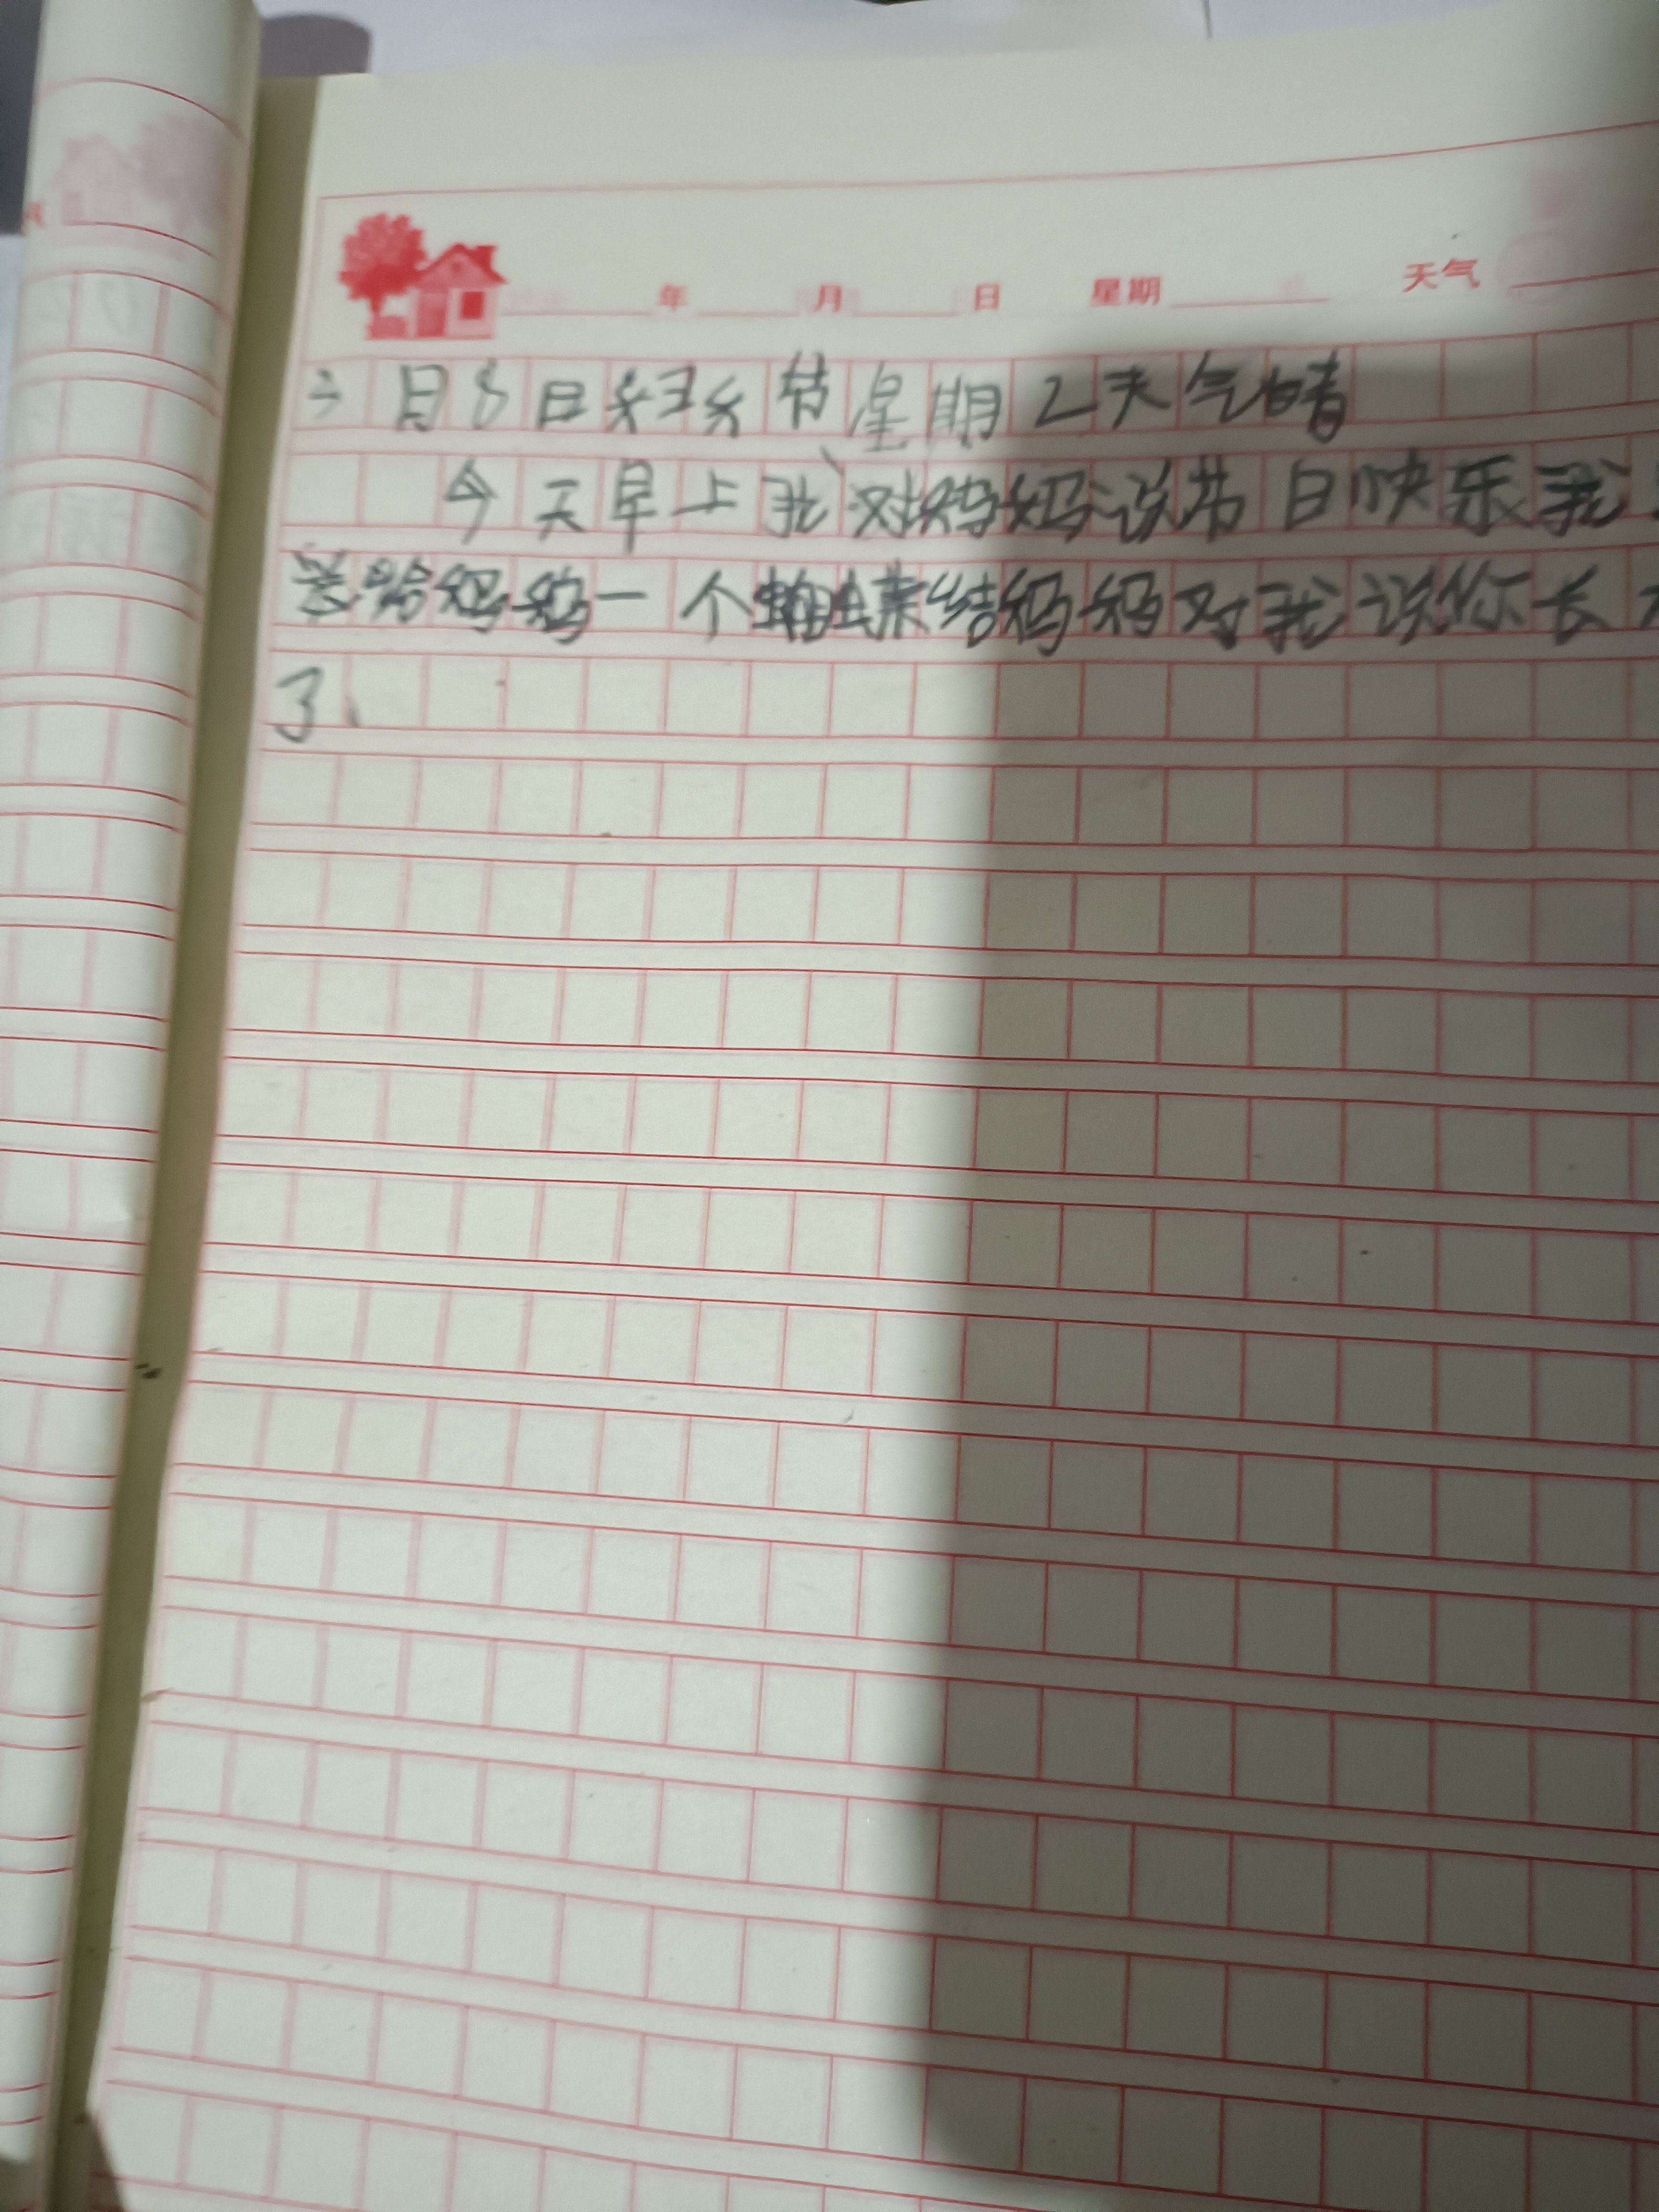 年 月 日 星期 天气
月8日妇女节星期乙天气晴
今天早上我对妈妈说节日快乐我
送给妈妈一个蝴蝶结妈妈对我说你长
了、